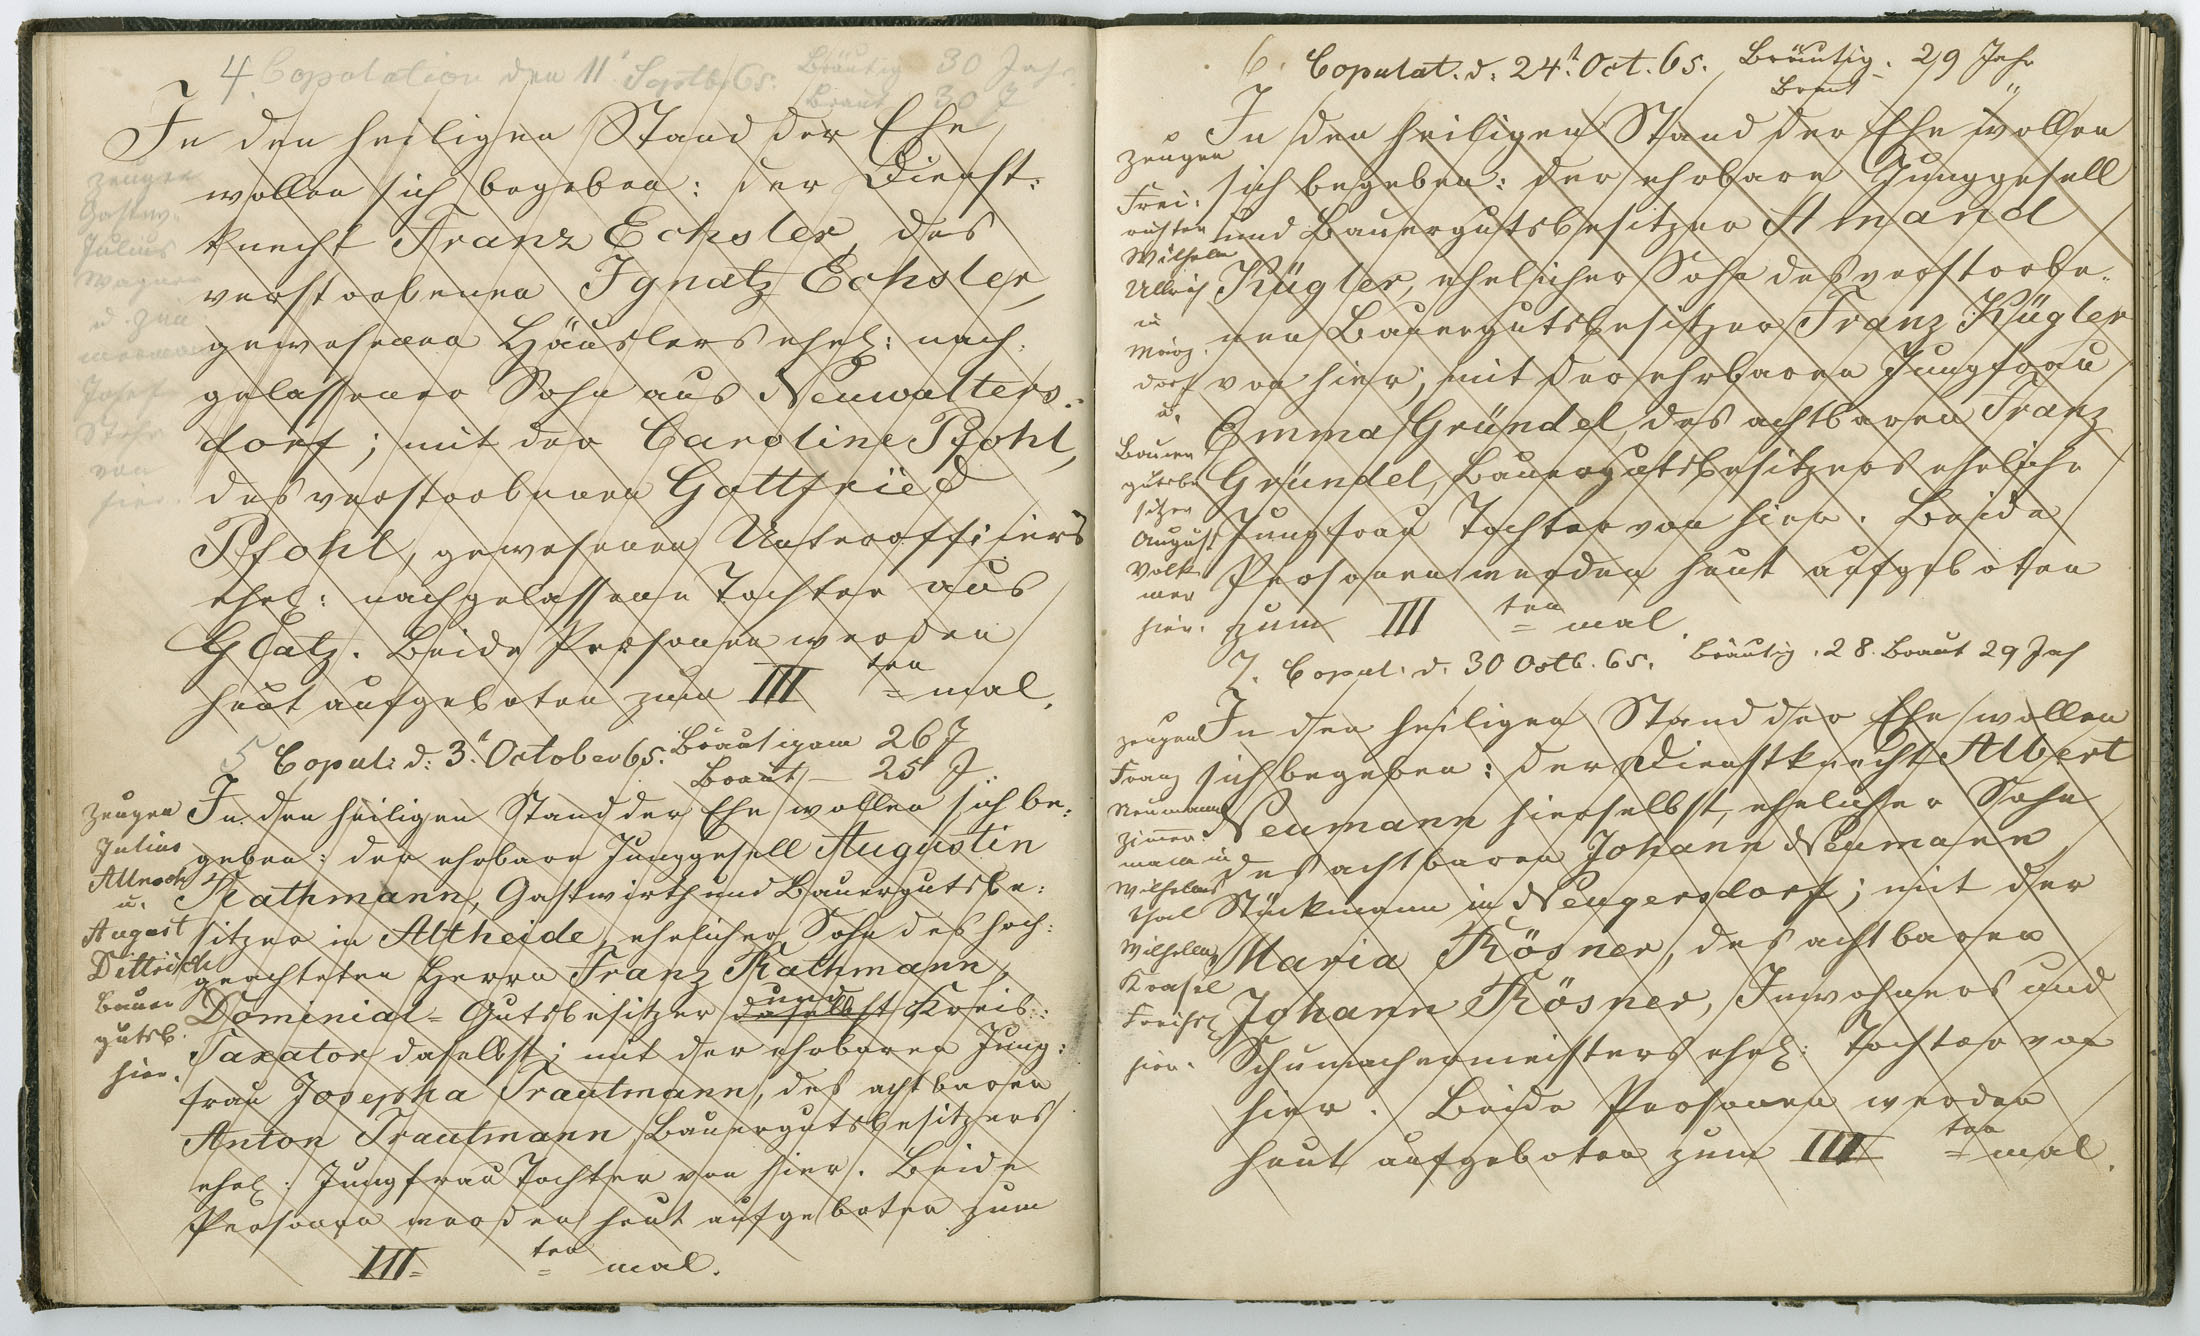 4. Copulation den 11t Septb. 65. Bräutig. 30 Jahr.
Braut 30 J
In den heiligen Stand der Ehe
wollen sich begeben: der Dienst-
knecht Franz Echsler, des
verstorbenen Ignatz Echsler,
gewesenen Häuslers ehel: nach-
gelassener Sohn aus Neuwalters-
dorf; mit der Caroline Pfohl,
des verstorbenen Gottfried
Pfohl, gewesenen Unteroffiziers
ehel: nachgelassene Tochter aus
Glatz. Beide Personen werden
heut aufgeboten zum III ten mal.
Zeugen
Gastw.
Julius
Wagner
u. Zim
mermann
Josef
von
hier.
5 Copul: d: 3t October 65. Bräutigam 26 J
Braut — 25 J.
In den heiligen Stand der Ehe wollen sich be-
geben: der ehrbare Junggesell Augustin
Rathmann, Gastwirth und Bauergutsbe-
sitzer in Altheide, ehelicher Sohn des hoch-
geachteten Herrn Franz Rathmann,
Dominial-Gutsbesitzer daselbst und Kreis-
Taxator daselbst; mit der ehrbaren Jung-
frau Josepha Trautmann, des achtbaren
Anton Trautmann Bauergutsbesitzers
ehel: Jungfrau Tochter von hier. Beide
Personen werden heut aufgeboten zum
III ten mal.
Zeugen
Julius
u.
August
Dittrich
Bauer
gutsb.
hier.
6. Copulat. d: 24t Oct. 65. Bräutig: 29 Jahr
Braut "
In den heiligen Stand der Ehe wollen
sich begeben: der ehrbare Junggesell
und Bauergutsbesitzer Amand
Kügler, ehelicher Sohn des verstorbe-
nen Bauergutsbesitzer Franz Kügler
von hier; mit der ehrbaren Jungfrau
Emma Gründel, des achtbaren Franz
Gründel, Bauergutsbesitzers eheliche
Jungfrau Tochter von hier. Beide
Personen werden heut aufgeboten
zum III ten mal.
Zeugen
Frei-
richter
Wilhelm
Ullrich
in
dorf
u.
Bauer
gutsbe
sitzer
August
Volk
mer
hier.
7. Copul: d. 30 Octb. 65. Bräutig. 28. Braut 29 Jah
In den heiligen Stand der Ehe wollen
sich begeben: der Dienstknecht Albert
Neumann hierselbst, ehelicher Sohn
des achtbaren Johann Neumann
Stückmann in Neugersdorf; mit der
Maria Rösner, des achtbaren
Johann Rösner, Inwohners und
Schumachermeisters ehel: Tochter von
hier. Beide Personen werden
heut aufgeboten zum III ten mal.
Zeugen
Franz
Neumann
Zimmer
mann in
Wilhelms
thal
Wilhelm
hier.